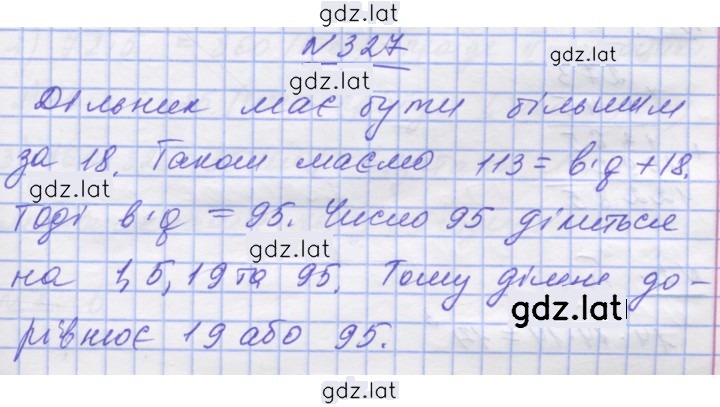 gdz.lat
№327
gdz.lat
Дільник має бути більшим
за 18. Також маємо 113 = b·q + 18.
gdz.lat
Тоді b·q = 95. Число 95 ділиться
gdz.lat
на 1, 5, 19 та 95. Тому ділене до-
gdz.lat
рівнює 19 або 95.
gdz.lat